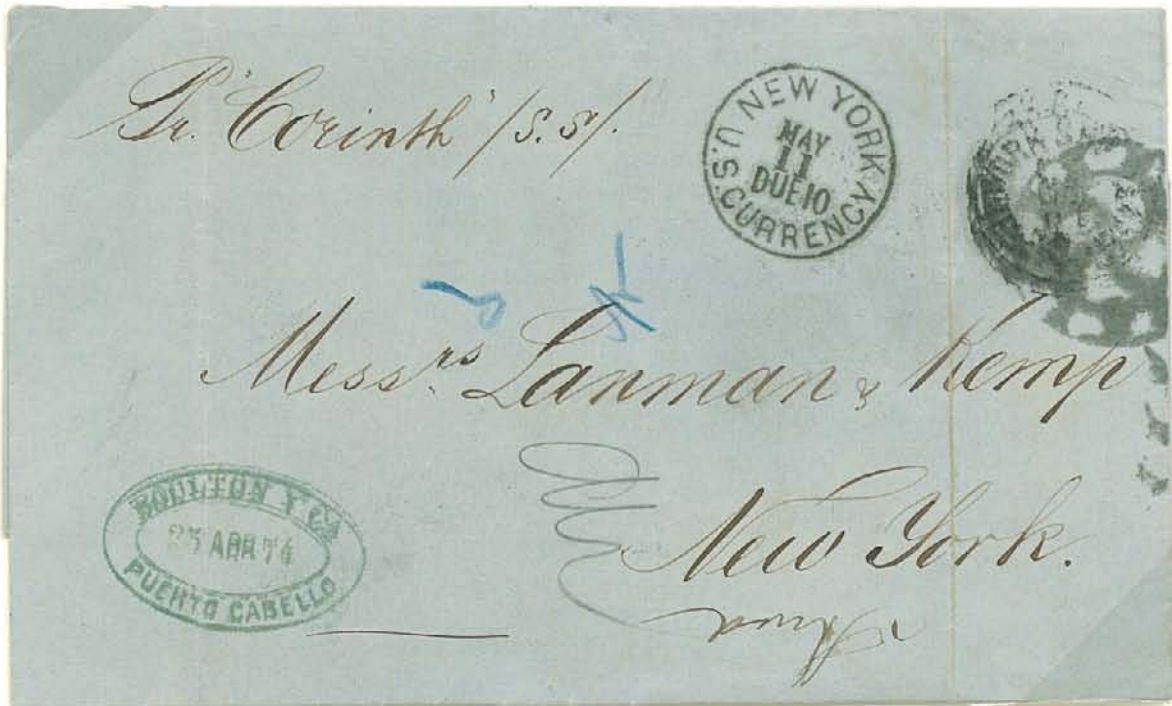 Pr. "Corinth" /S.S/.
NEW YORK
MAY
11
DUE 10
U.S. CURRENCY
Messrs Lanman & Kemp
New York.
BOULTON Y Ca
25 ABR 74
PUERTO CABELLO